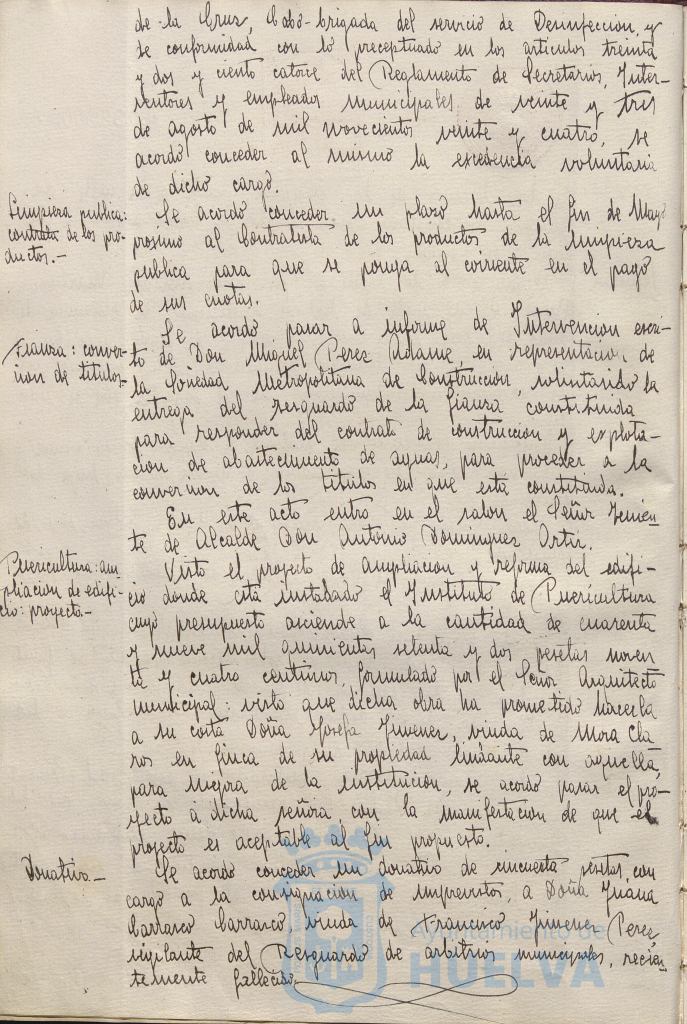 de la Cruz, Cabo-brigada del servicio de Desinfeccion, y
de conformidad con lo preceptuado en los articulos treinta
y dos y ciento catorce del Reglamento de Secretarios, Inter-
ventores y empleados municipales de veinte y tres
de agosto de mil novecientos veinte y cuatro, se
acordó conceder al mismo la excedencia voluntaria
de dicho cargo.
Limpieza publica:
contrata de los pro-
ductos.-
Se acordó conceder un plazo hasta el fin de Mayo
prosimo al Contratista de los productos de la limpieza
publica para que se ponga al corriente en el pago
de sus cuotas.
Fianza: conver-
sion de titulos-
Se acordó pasar a informe de Intervencion escri-
to de Don Miguel Perez Adame, en representacion de
la Sociedad Metropolitana de Construccion, solicitando la
entrega del resguardo de la fianza constituida
para responder del contrato de construccion y explota-
cion de abastecimiento de aguas, para proceder a la
conversion de los titulos en que está constituida.
En este acto entró en el salon el Señor Tenien-
te de Alcalde Don Antonio Dominguez Ortiz.
Puericultura: am-
pliacion de edifi-
cio: proyecto.-
Visto el proyecto de ampliacion y reforma del edifi-
cio donde está instalado el Instituto de Puericultura
cuyo presupuesto asciende a la cantidad de cuarenta
y nueve mil quinientas setenta y dos pesetas noven
ta y cuatro centimos, formulado por el Señor Arquitecto
municipal: visto que dicha obra ha prometido hacerla
a su costa Doña Josefa Jimenez, viuda de Mora Cla
ros en finca de su propiedad lindante con aquella,
para mejora de la institucion, se acordó pasar el pro-
yecto á dicha señora, con la manifestacion de que el
proyecto es aceptable al fin propuesto.
Donativo.-
Se acordó conceder un donativo de cincuenta pesetas, con
cargo a la consignacion de imprevistos, a Doña Juana
Carrasco Carrasco, viuda de Francisco Jimenez Perez,
vigilante del Resguardo de arbitrios municipales, recien
temente fallecido.
Ayuntamiento de
HUELVA